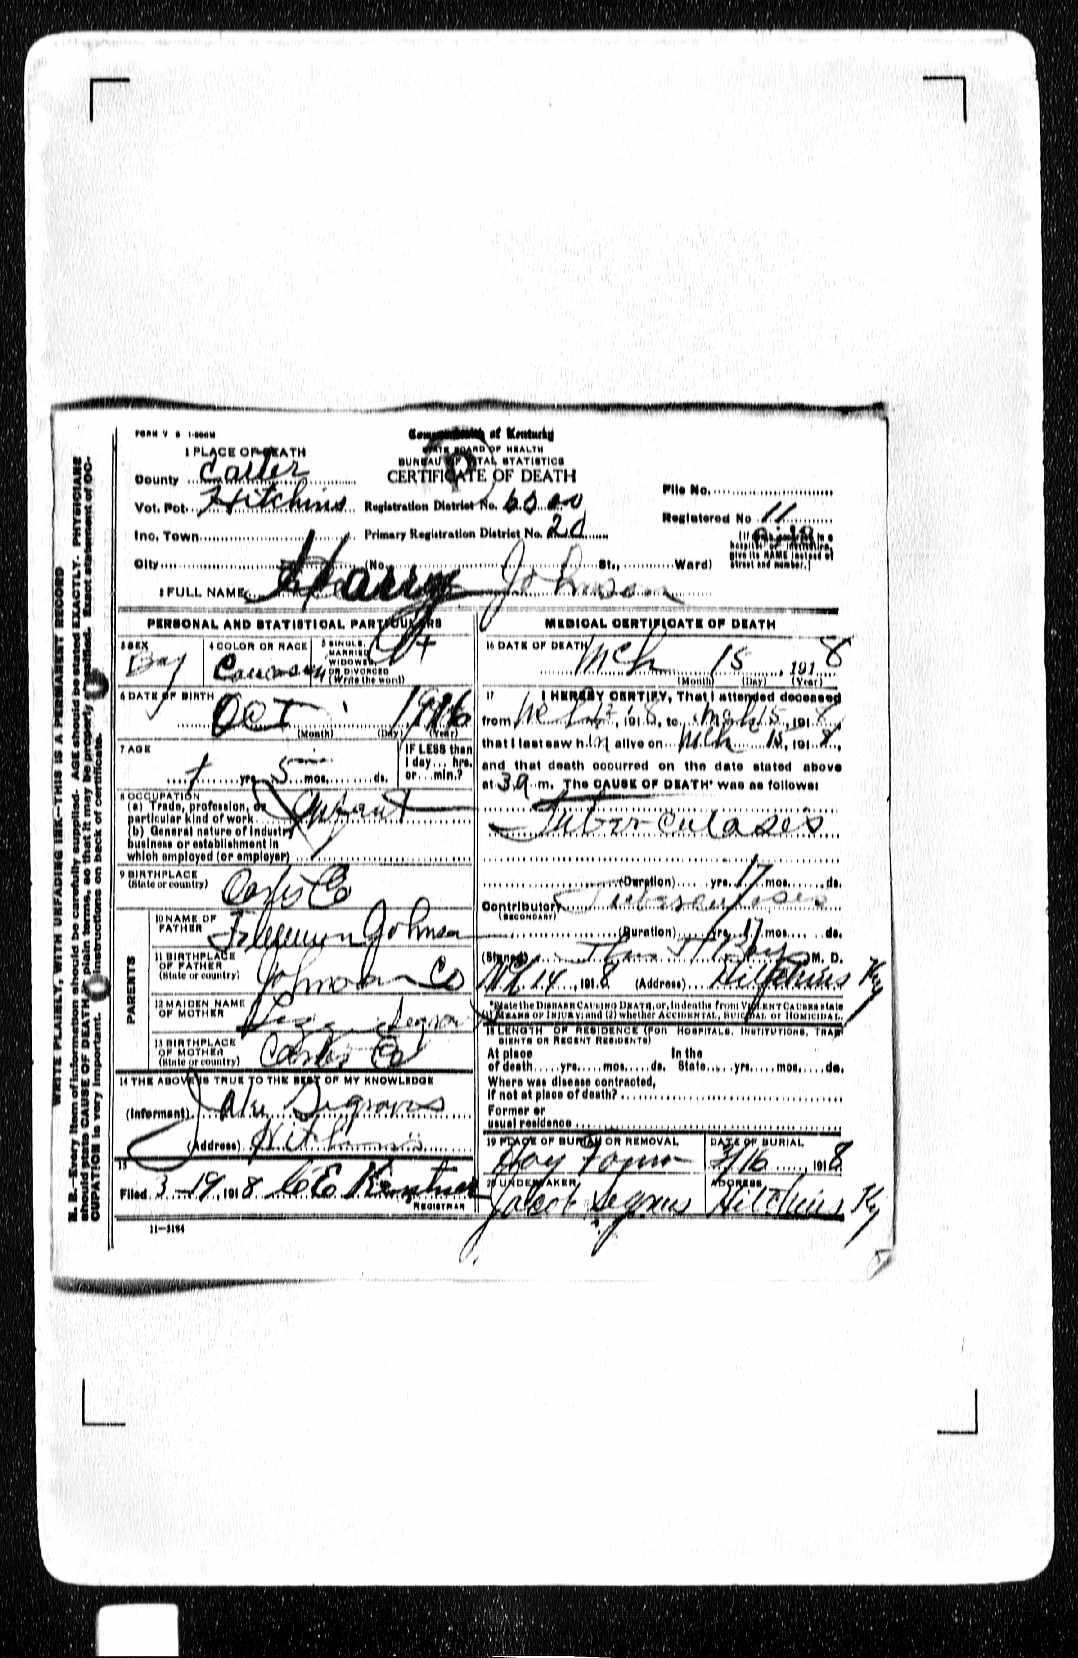 FORM V S 1-500M
Commonwealth of Kentucky
STATE BOARD OF HEALTH
BUREAU OF VITAL STATISTICS
CERTIFICATE OF DEATH
1 PLACE OF DEATH
County Carter
Vot. Pct. Hitchins Registration District No.
Inc. Town Primary Registration District No. 20
City (No. St., Ward)
File No.
Registered No 11
give its NAME instead of
street and number.]
2 FULL NAME Harry Johnson
PERSONAL AND STATISTICAL PARTICULARS
3 SEX Boy
4 COLOR OR RACE
5 SINGLE, MARRIED WIDOWED OR DIVORCED (Write the word)
6 DATE OF BIRTH Oct 1916
(Month) (Day) (Year)
7 AGE 1 yrs. 5 mos. ds.
IF LESS than 1 day... hrs. or... min.?
8 OCCUPATION
(a) Trade, profession, or particular kind of work Infant
(b) General nature of industry business or establishment in which employed (or employer)
9 BIRTHPLACE (State or country) Carter Co
PARENTS
10 NAME OF FATHER Johnson
11 BIRTHPLACE OF FATHER (State or country) Johnson Co
12 MAIDEN NAME OF MOTHER
13 BIRTHPLACE OF MOTHER (State or country) Carter Co
14 THE ABOVE IS TRUE TO THE BEST OF MY KNOWLEDGE
(Informant) Jake
(Address) Hitchins
15
Filed 3-19, 1918 C E
REGISTRAR
11-3184
MEDICAL CERTIFICATE OF DEATH
16 DATE OF DEATH Mch 15, 1918
(Month) (Day) (Year)
17 I HEREBY CERTIFY, That I attended deceased
from Mch, 1918, to Mch 15, 1918,
that I last saw him alive on Mch 15, 1918,
and that death occurred on the date stated above
at 3 a m. The CAUSE OF DEATH* was as follows:
Tuberculases
(Duration) yrs. 17 mos. ds.
Contributory Tuberculosis
(SECONDARY)
(Duration) yrs. 17 mos. ds.
(Signed) M. D.
Mch 14, 1918 (Address) Hitchins Ky
*State the DISEASE CAUSING DEATH, or, in deaths from VIOLENT CAUSES state
MEANS OF INJURY; and (2) whether ACCIDENTAL, SUICIDAL or HOMICIDAL.
18 LENGTH OF RESIDENCE (FOR HOSPITALS, INSTITUTIONS, TRANSIENTS OR RECENT RESIDENTS)
At place of death yrs. mos. ds. In the State yrs. mos. ds.
Where was disease contracted,
If not at place of death?
Former or
usual residence
19 PLACE OF BURIAL OR REMOVAL
DATE OF BURIAL 3/16, 1918
20 UNDERTAKER Jacob
ADDRESS Hitchins Ky
WRITE PLAINLY, WITH UNFADING INK—THIS IS A PERMANENT RECORD
N. B.—Every item of information should be carefully supplied. AGE should be stated EXACTLY. PHYSICIANS
should state CAUSE OF DEATH in plain terms, so that it may be properly classified. Exact statement of OC-
CUPATION is very important. See instructions on back of certificate.